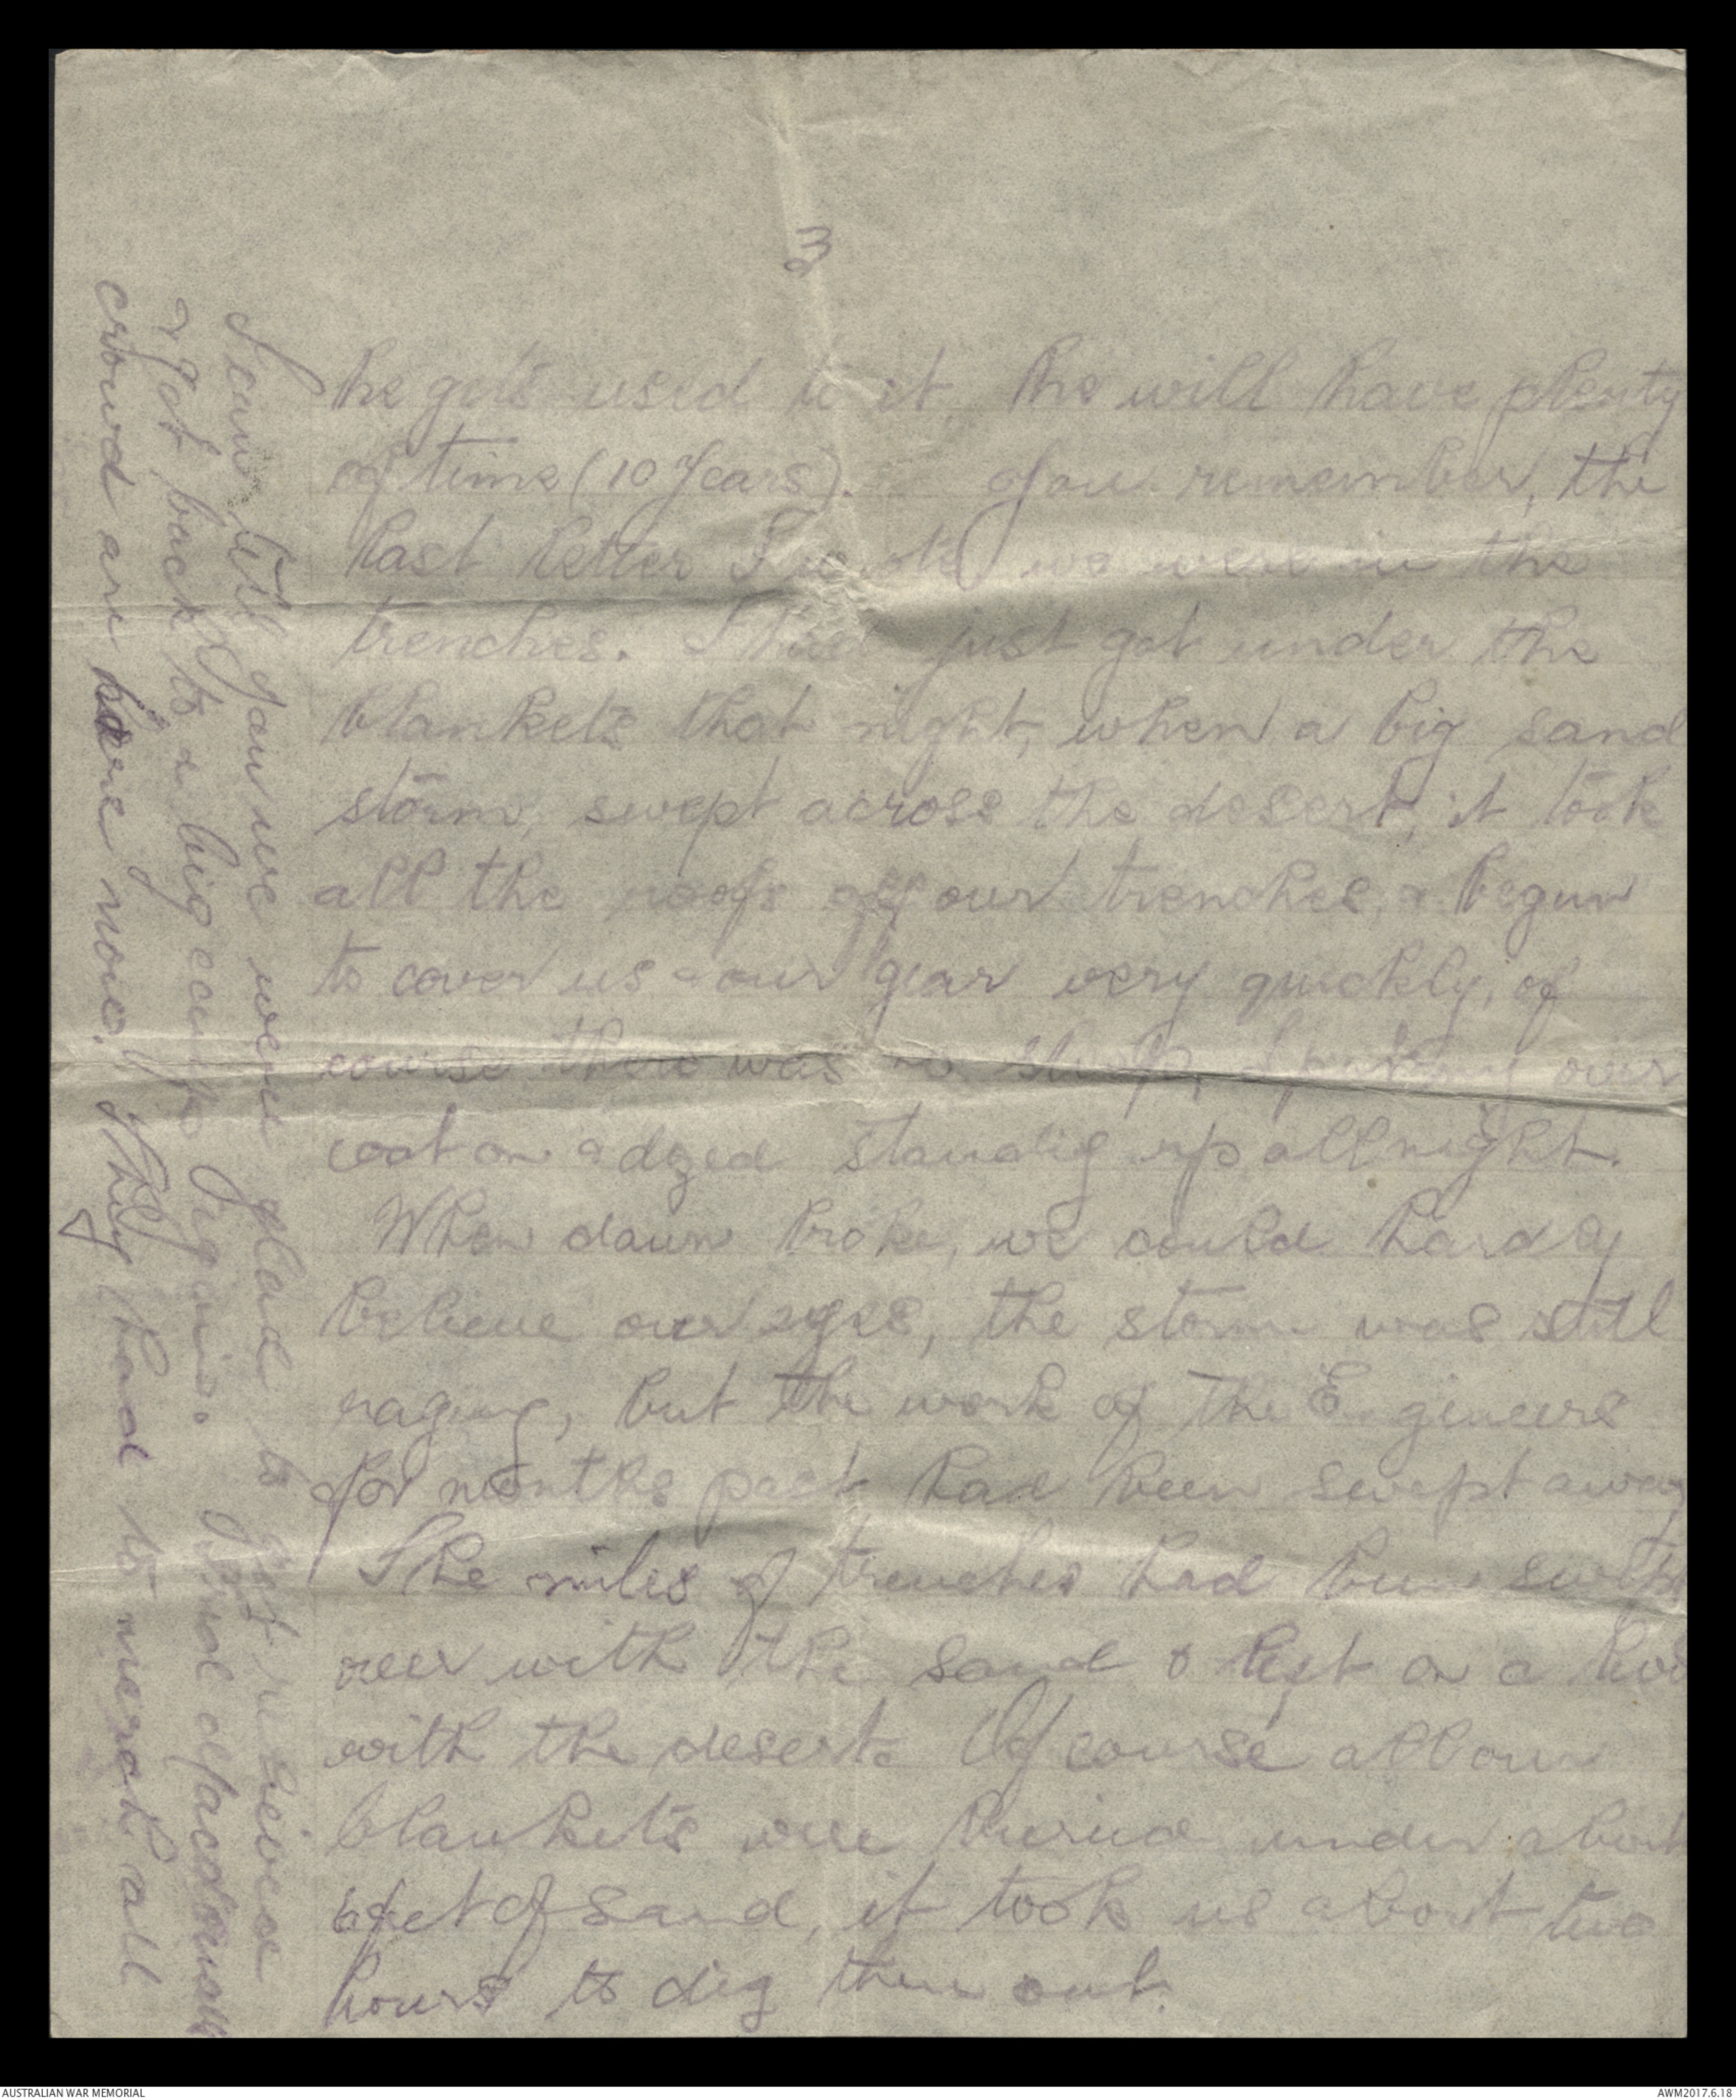 3
he gets used to it, he will have plenty
of time (10 Years). You remember, the
last letter I wrote we were in the
trenches. I had just got under the
blankets that night, when a big sand
storm, swept across the desert, it took
all the roofs off our trenches, & begun
to cover us & our gear very quickly, of
course there was no sleep, I put my over
coat on & dozed standig up all night.
When dawn broke, we could hardly
believe our eyes, the storm was still
raging, but the work of the Engineers
for months past had been swept away
The miles of trenches had been swept
over with the sand & left on a
with the desert. Of course all our
blankets were buried under about
6 feet of sand, it took us about two
hours to dig them out.
I can tell you we were glad to get relieved
& got back to a big camp again.
crowd are here now. They had to march all
AUSTRALIAN WAR MEMORIAL
AWM2017.6.18